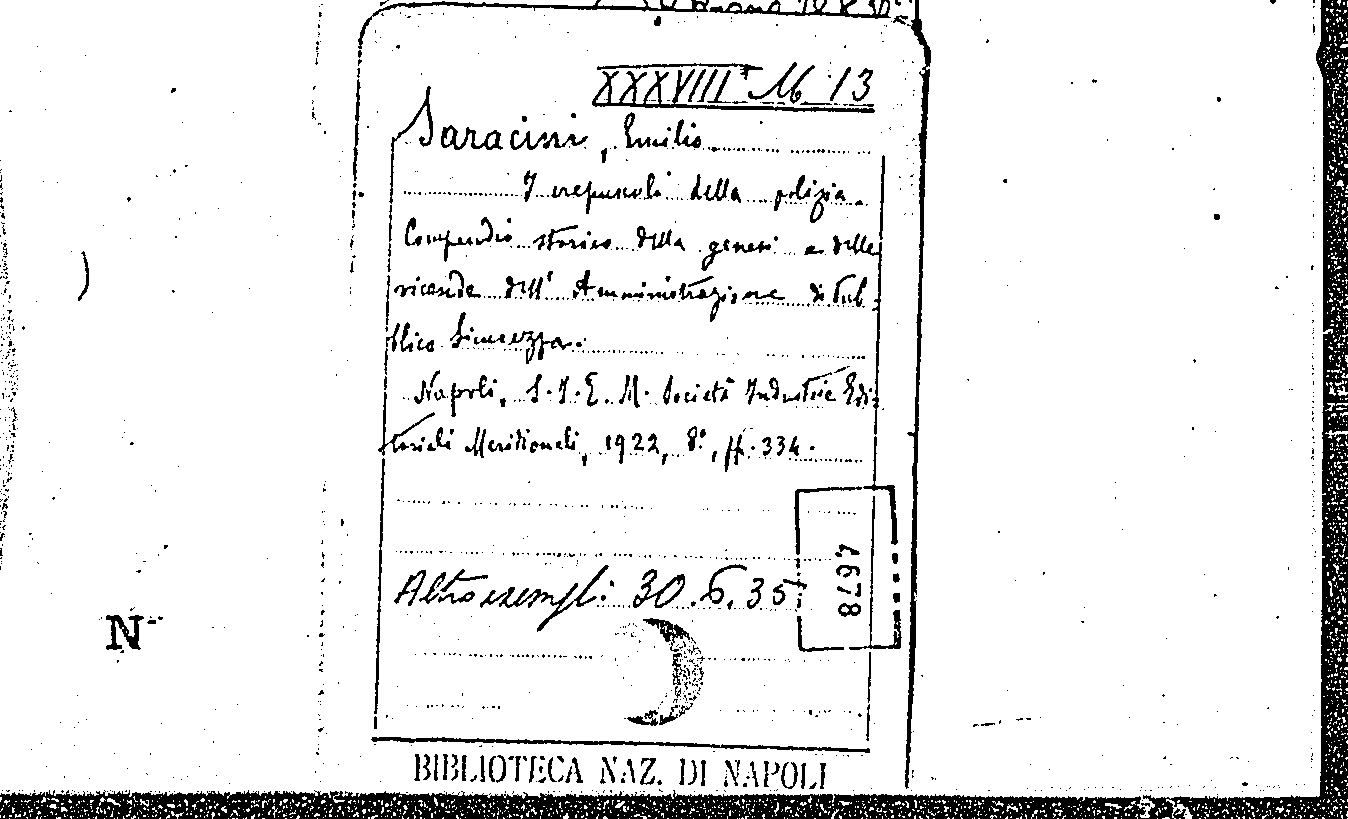 XXXVIII. M 13
Saracini, Emilio.
I crepuscoli della polizia.
Compendio storico della genesi e delle
vicende dell' Amministrazione di Pub-
blica Sicurezza.
Napoli, S.I.E.M. Società Industrie Edi-
toriali Meridionali, 1922, 8°, pp. 334.
Altro esempl: 30.6.35
4678
N
BIBLIOTECA NAZ. DI NAPOLI